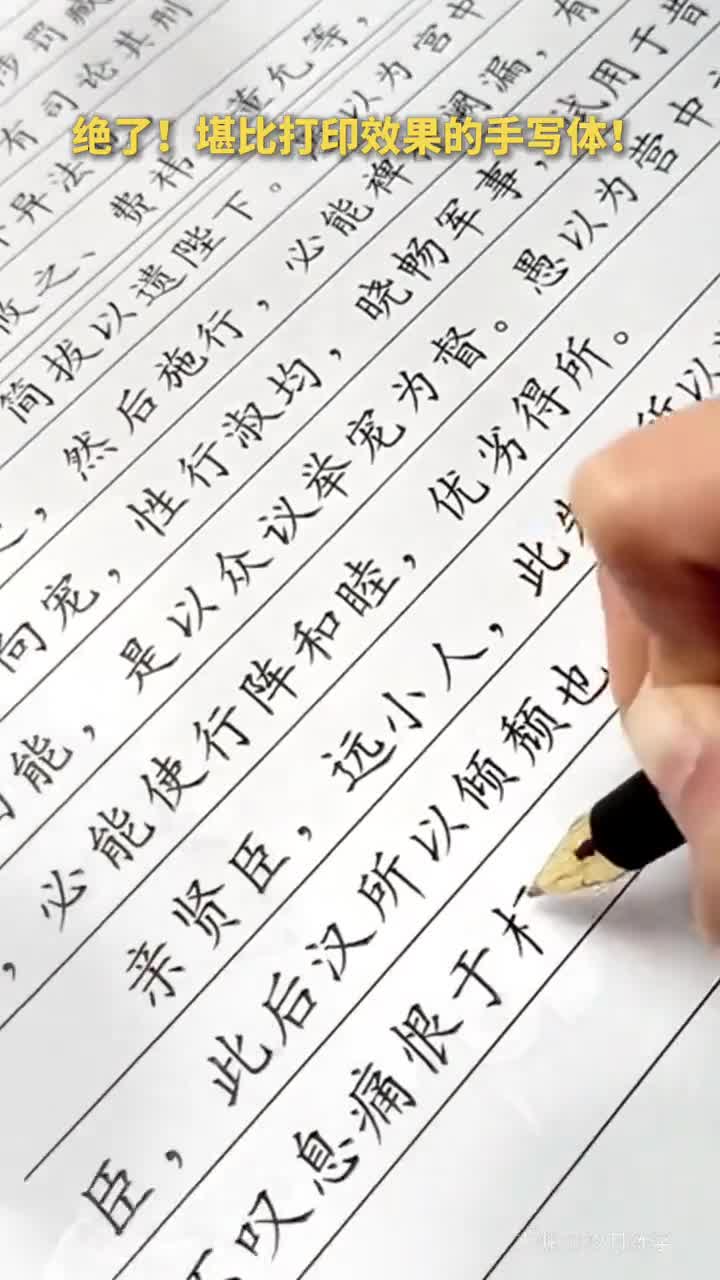 绝了！堪比打印效果的手写体！
罚臧
有司论其刑
异法
攸之、费祎、董允等，
简拔以遗陛下。愚以为宫中
，然后施行，必能裨补阙漏，有
向宠，性行淑均，晓畅军事，试用于昔
能，是以众议举宠为督。愚以为营中
，必能使行阵和睦，优劣得所。
亲贤臣，远小人，此先所以
臣，此后汉所以倾颓也
叹息痛恨于